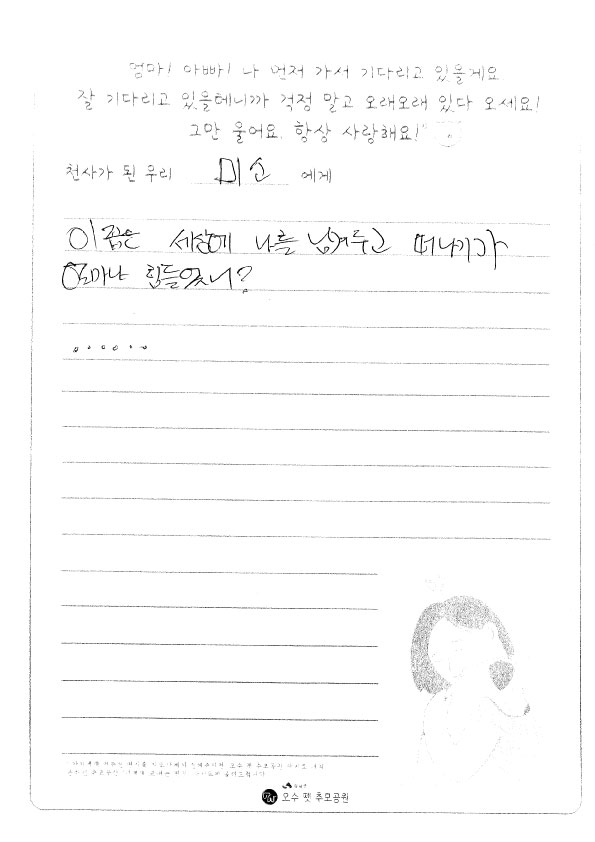 엄마! 아빠! 나 먼저 가서 기다리고 있을게요
잘 기다리고 있을테니까 걱정 말고 오래오래 있다 오세요!
그만 울어요. 항상 사랑해요!
천사가 된 우리 미소 에게
이 곱은 세상에 나를 남겨두고 떠나기가
얼마나 힘들었니?
......
오수 펫 추모공원